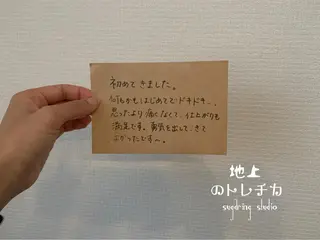 初めてきました。
何もかもはじめてでドキドキ…、
思ったより痛くなくて、仕上がりも
満足です。勇気を出して、きて
よかったです〜。
地上
のトレチカ
sugaring studio